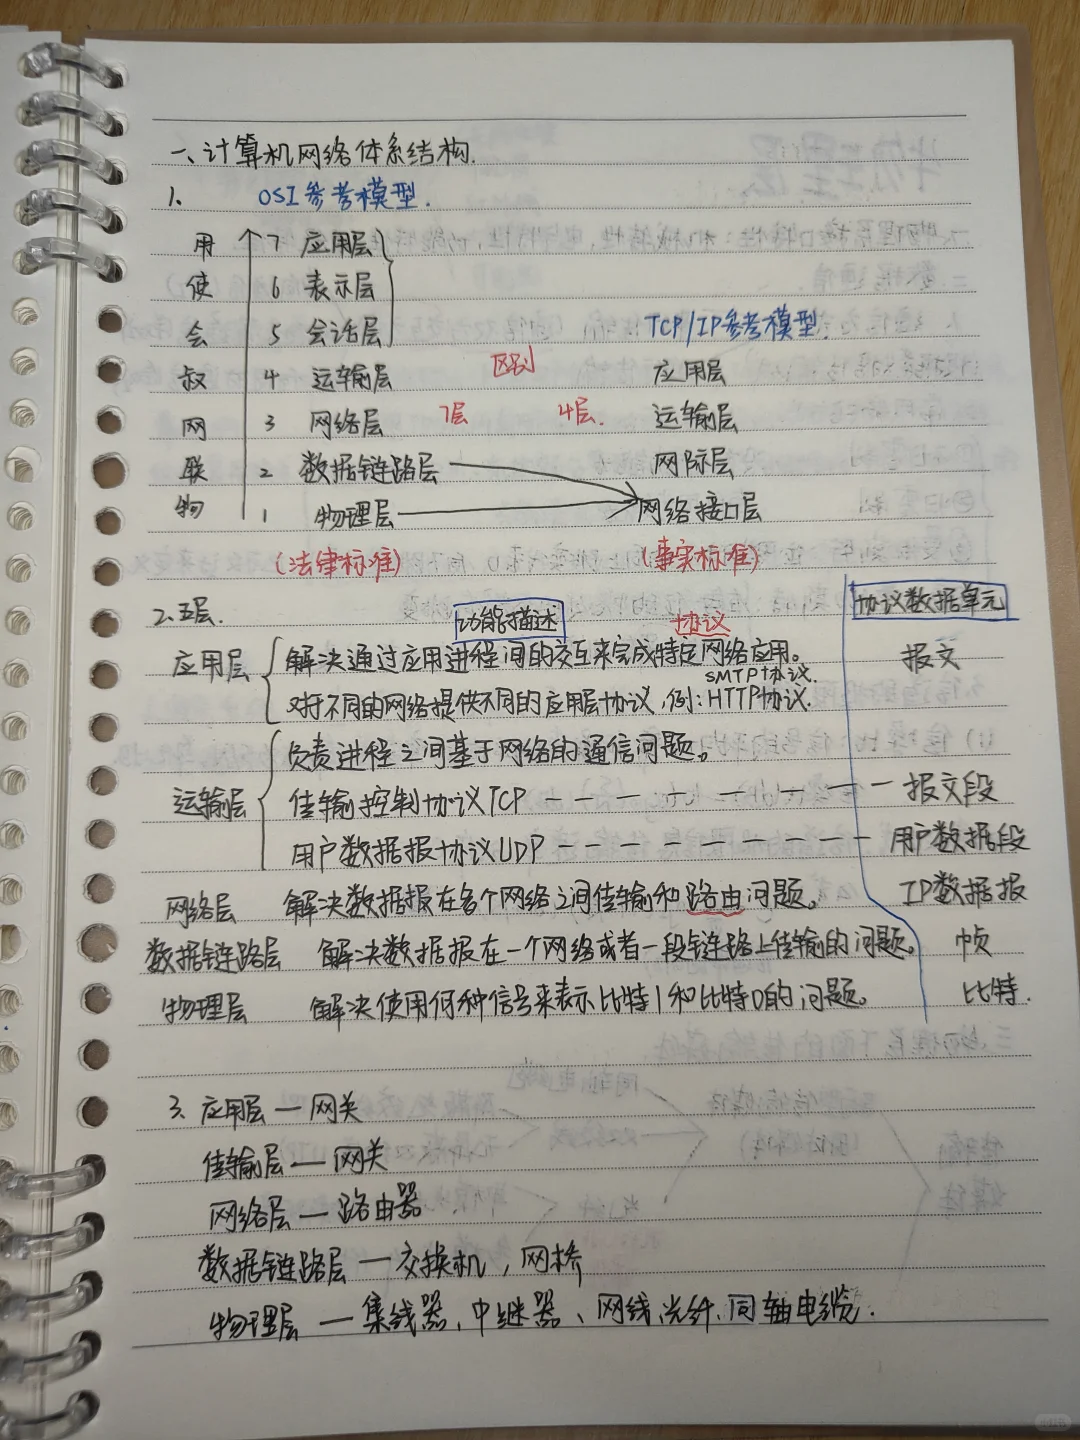 一、计算机网络体系结构.
1. OSI参考模型.
用 7 应用层
使 6 表示层
会 5 会话层 TCP/IP参考模型.
叔 4 运输层 区别 应用层
网 3 网络层 7层 4层. 运输层
联 2 数据链路层 网际层
物 1 物理层 网络接口层
(法律标准) (事实标准)
2.五层. 功能描述 协议 协议数据单元
应用层 解决通过应用进程间的交互来完成特定网络应用。 报文
SMTP协议.
对不同的网络提供不同的应用层协议,例:HTTP协议.
负责进程之间基于网络的通信问题。
运输层 传输控制协议TCP 报文段
用户数据报协议UDP 用户数据段
网络层 解决数据报在各个网络之间传输和路由问题。 IP数据报
数据链路层 解决数据报在一个网络或者一段链路上传输的问题。 帧
物理层 解决使用何种信号来表示比特1和比特0的问题。 比特.
3. 应用层—网关
传输层—网关
网络层—路由器
数据链路层—交换机,网桥
物理层—集线器、中继器、网线、光纤、同轴电缆.
小红书